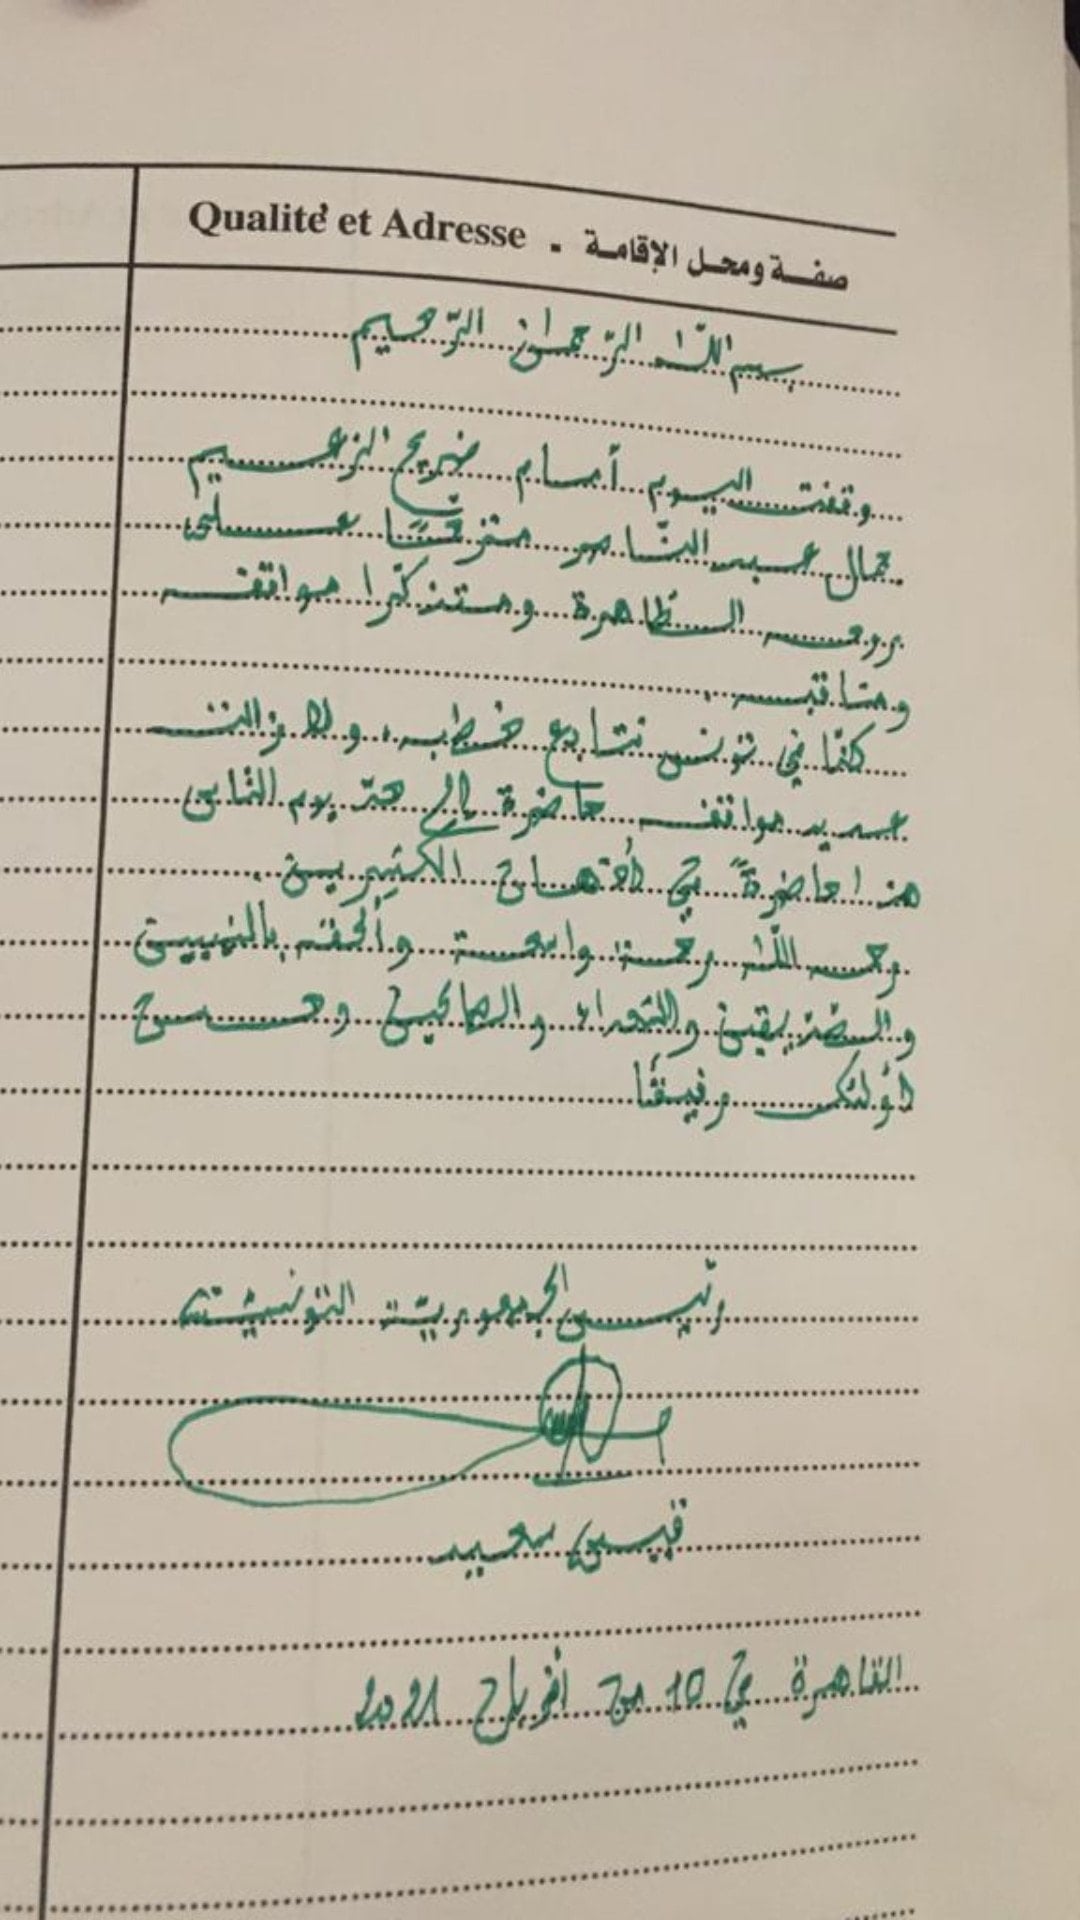 Qualité et Adresse - صفة ومحل الإقامة
بسم اللّه الرّحمان الرّحيم
وقفت اليوم أمام ضريح الزعيم
جمال عبد النّاصر مترحّمًا على
روحه الطّاهرة ومستذكرا مواقفه
ومناقبه.
كنّا في تونس نتابع خطبه، ولا زالت
عديد مواقفه حاضرة إلى حدّ يوم النّاس
هذا حاضرةً في أذهان الكثيرين.
رحمه اللّه رحمة واسعة وألحقه بالنبيين
والصدّيقين والشهداء والصالحين وحسن
أولئك رفيقًا
رئيس الجمهوريّة التونسيّة
قيس سعيد
القاهرة في 10 من أفريل 2021